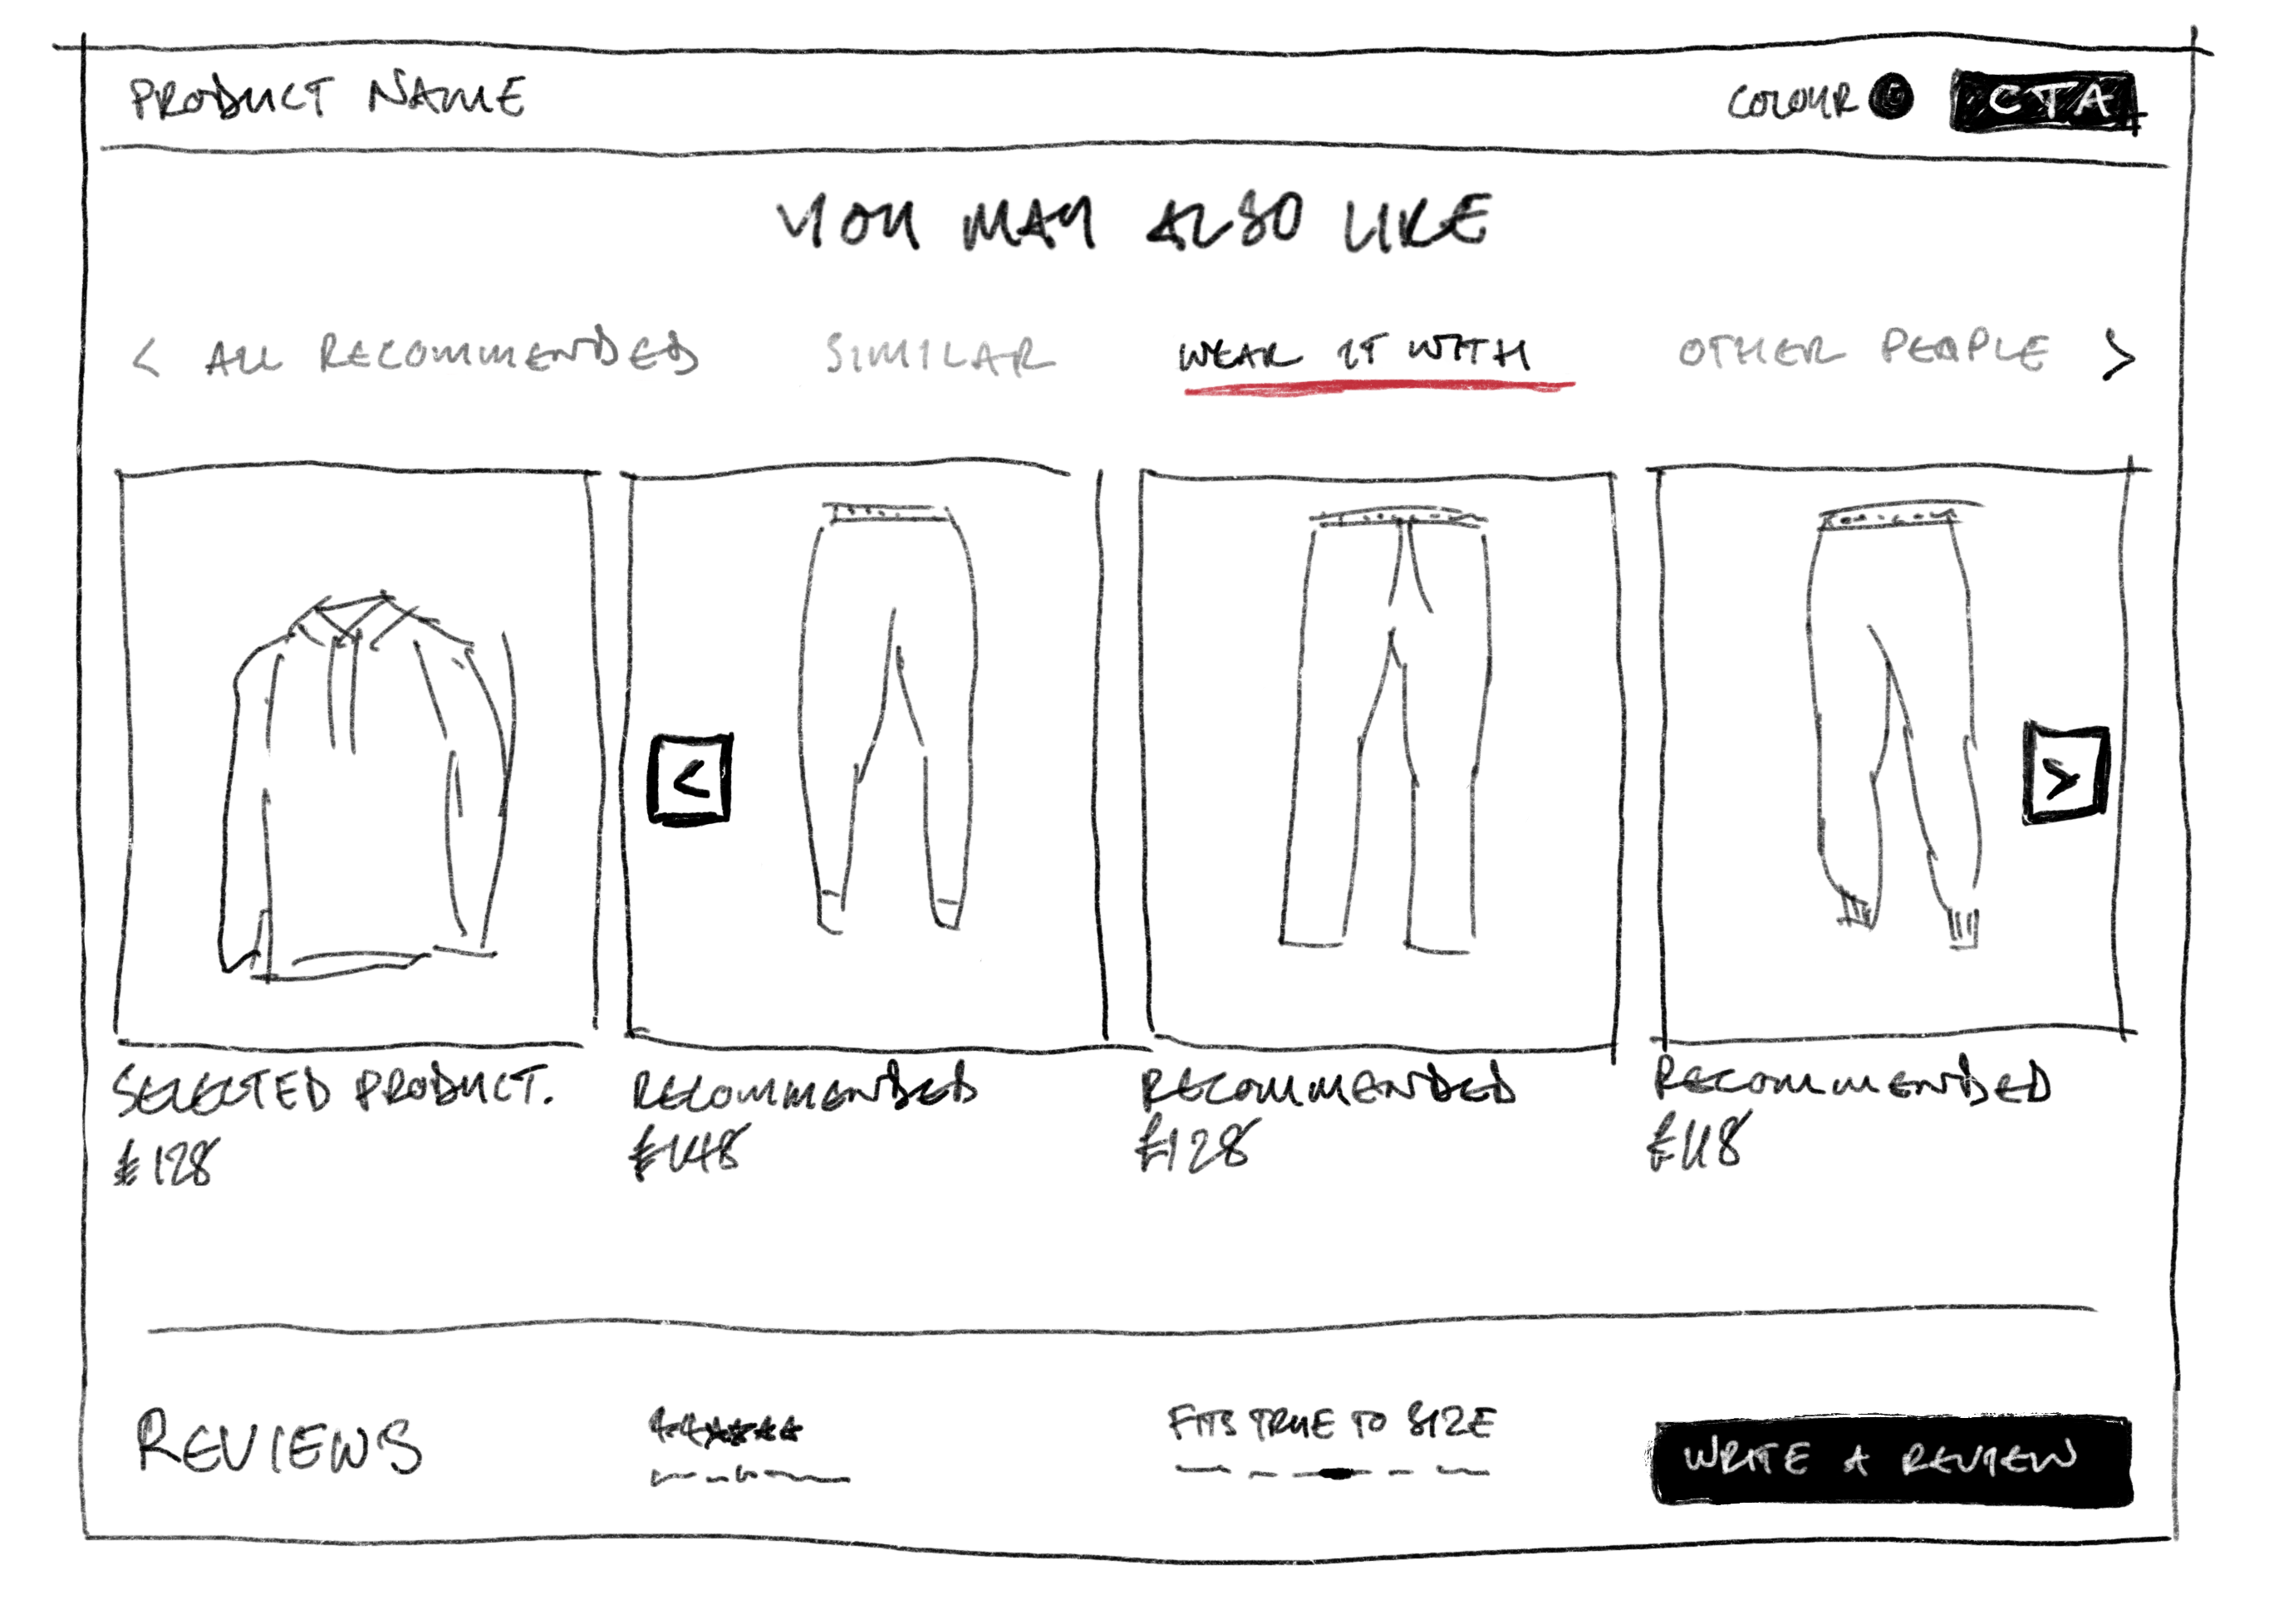 PRODUCT NAME
COLOUR
CTA
YOU MAY ALSO LIKE
< ALL RECOMMENDED
SIMILAR
WEAR IT WITH
OTHER PEOPLE >
<
>
SELECTED PRODUCT.
£128
RECOMMENDED
£148
RECOMMENDED
£128
RECOMMENDED
£118
REVIEWS
FITS TRUE TO SIZE
WRITE A REVIEW